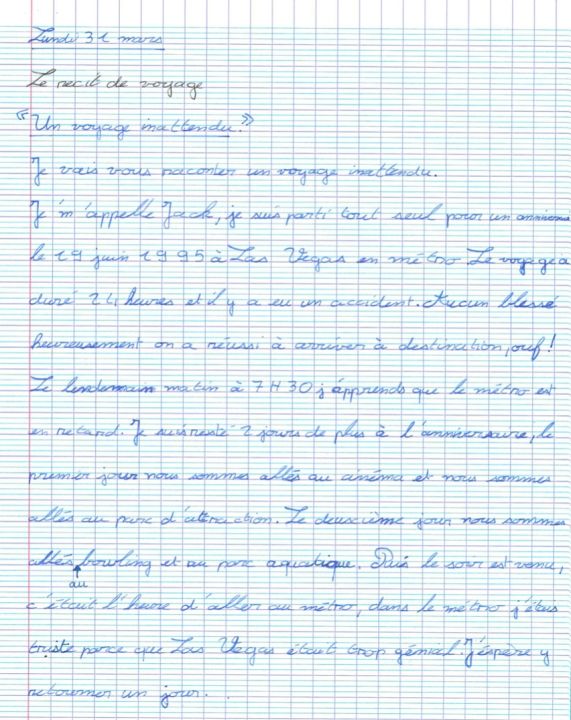 Lundi 31 mars
Le récit de voyage
"Un voyage inattendu."
Je vais vous raconter un voyage inattendu.
Je m'appelle Jack, je suis parti tout seul pour un annivers
le 19 juin 1995 à Las Vegas en métro Le voyage a
duré 24 heures et il y a eu un accident. Aucun blessé
heureusement on a réussi à arriver à destination, ouf !
Le lendemain matin à 7H30 j'apprends que le métro est
en retard. Je suis resté 2 jours de plus à l'anniversaire, le
premier jour nous sommes allés au cinéma et nous sommes
allés au parc d'attraction. Le deuxième jour nous sommes
allés bowling et au parc aquatique. Puis le soir est venu,
au
c'était l'heure d'aller au métro, dans le métro j'étais
triste parce que Las Vegas était trop génial. J'espère y
retourner un jour.